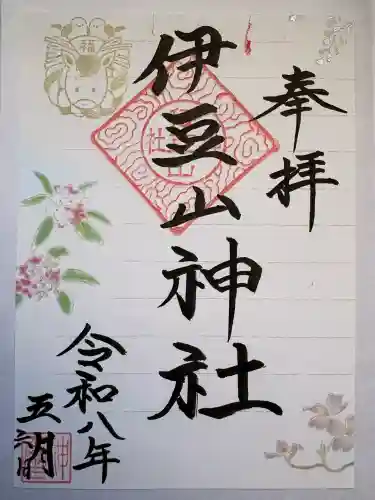 奉拝
伊豆山神社
令和八年
五月
三日
福